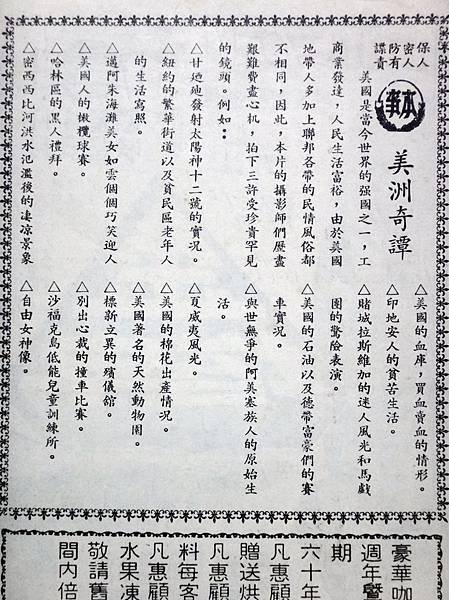 保密防諜
人人有責
本事
美洲奇譚
美國是當今世界的强國之一,工
商業發達,人民生活富裕,由於美國
地帶人多加上聯邦各帶的民情風俗都
不相同,因此,本片的攝影師們歷盡
艱難費盡心机,拍下三許受珍貴罕見
的鏡頭。例如:
△甘廼廸發射太陽神十二號的實況。
△紐約的繁華街道以及貧民區老年人
的生活寫照。
△邁阿朱海灘美女如雲個個巧笑迎人
△美國人的橄欖球賽。
△哈林區的黑人禮拜。
△密西西比河洪水氾濫後的凄凉景象
△美國的血庫,買血賣血的情形。
△印地安人的貧苦生活。
△賭城拉斯維加的迷人風光和馬戲
團的驚險表演。
△美國的石油以及德帶富豪們的賽
車實況。
△與世無爭的阿美塞族人的原始生
活。
△夏威夷風光。
△美國的棉花出產情況。
△美國著名的天然動物園。
△標新立異的殯儀舘。
△別出心裁的撞車比賽。
△沙福克島低能兒童訓練所。
△自由女神像。
豪華咖
週年暨
期
六十年
凡惠顧
贈送烘
凡惠顧
料每客
凡惠顧
水果凍
敬請舊
間內倍